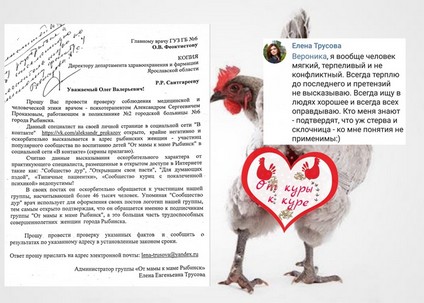 Главному врачу ГУЗ ГБ №6
О.В. Феоктистову
КОПИЯ
Директору департамента здравоохранения и фармации
Ярославской области
Р.Р. Саитгарееву
Уважаемый Олег Валерьевич!
Прошу Вас провести проверку соблюдения медицинской и
человеческой этики врачом - психотерапевтом Александром Сергеевичем
Прокаховым, работающим в поликлинике №2 городской больницы №6
города Рыбинска.
Данный специалист на своей личной странице в социальной сети "В
контакте" открыто, крайне негативно и
оскорбительно высказывается в адрес рыбинских женщин - участниц
популярного сообщества по воспитанию детей "От мамы к маме Рыбинск" в
социальной сети «В контакте» (скрины прилагаю).
Считаю данные высказывания оскорбительного характера от
практикующего специалиста, размещенные в открытом доступе в Интернете
такие как: "Сообщество дур", "Открывшие свои пасти", "Для думающих
ходай", «Типичные пациентки», «Сообщество куриц с покалеченной
психикой» недопустимы!
В своих постах он оскорбительно обращается к участницам нашей
группы, насчитывающей более 46 тысяч человек. Упоминая "Сообщество
дур" врач использует для оформления своих постов логотип нашей группы,
тем самым открыто подтверждая, что он обращается именно к подписчикам
группы "От мамы к маме Рыбинск", а это большая часть трудоспособных
совершеннолетних женщин города Рыбинска.
Прошу провести проверку указанных фактов и сообщить о
результатах по указанному адресу в установленные законом сроки.
Ответ прошу прислать на адрес электронной почты: lena-trunova@yandex.ru
Администратор группы «От мамы к маме Рыбинск»
Елена Евгеньевна Трусова
Елена Трусова
Вероника, я вообще человек
мягкий, терпеливый и не
конфликтный. Всегда терплю
до последнего и претензий
не высказываю. Всегда ищу в
людях хорошее и всегда всех
оправдываю. Кто меня знают
- подтвердят, что уж стерва и
склочница - ко мне понятия не
применимы:)
От куры
к куре